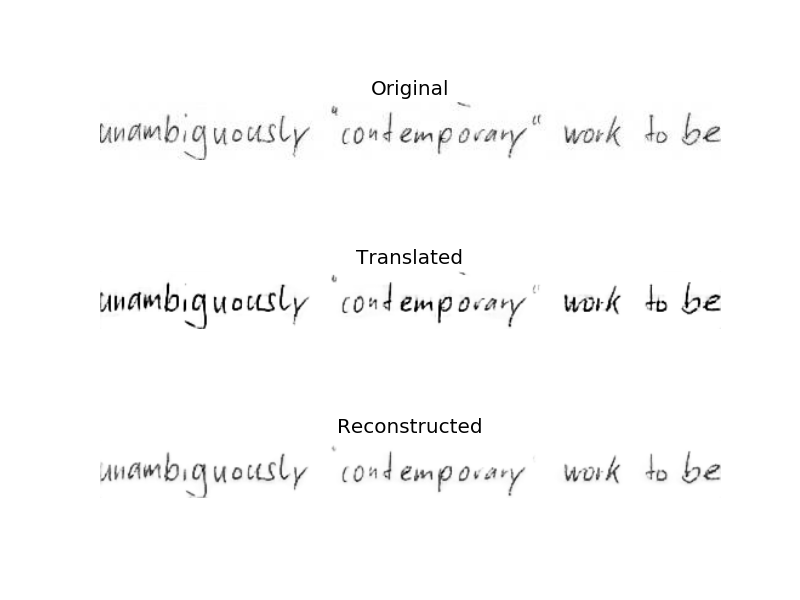 Original
unambiguously "contemporary" work to be
Translated
unambiguously "contemporary" work to be
Reconstructed
unambiguously 'contemporary work to be